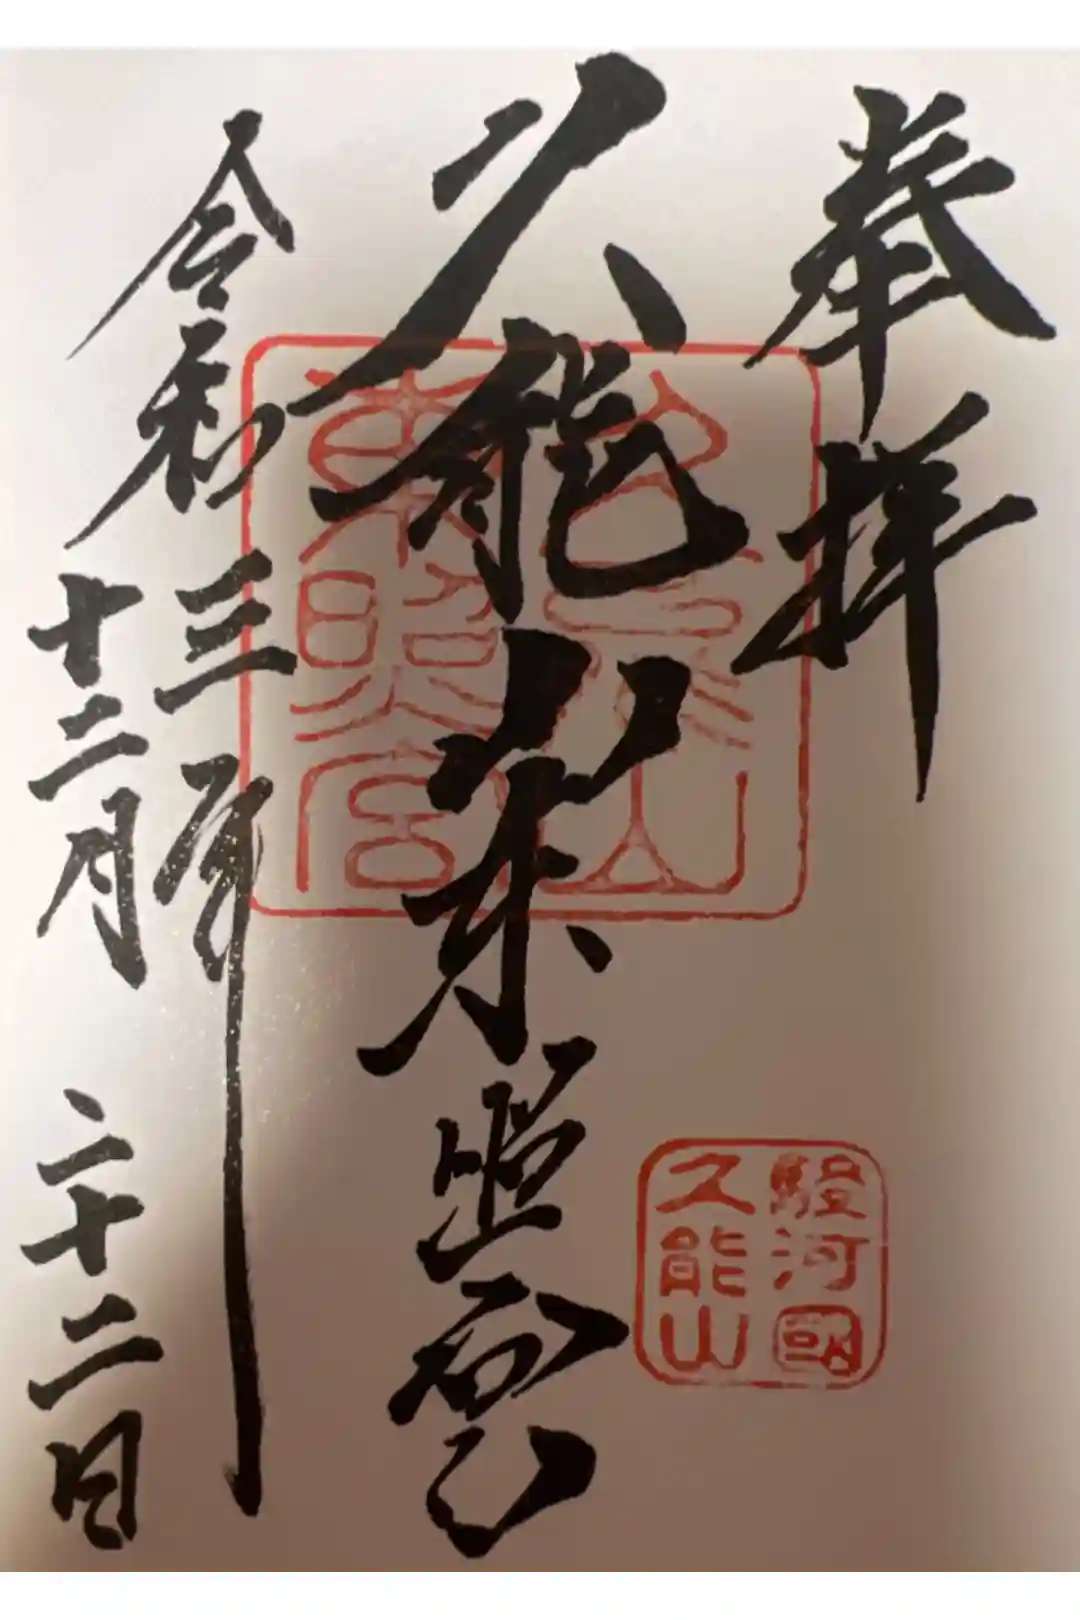 奉拝
久能山
東照宮
久能山東照宮
駿河國
久能山
令和三年
十二月二十二日